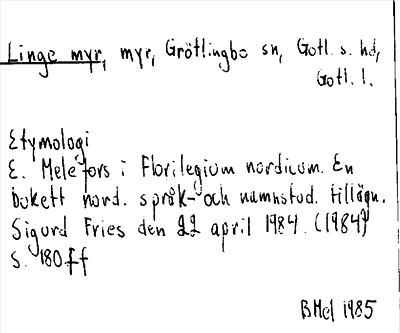 Linge myr, myr, Grötlingbo sn, Gotl. s. hd,
Gotl. l.
Etymologi
E. Melefors i Florilegium nordicum. En
bukett nord. språk- och namnstud. tillägn.
Sigurd Fries den 22 april 1984. (1984)
S. 180 ff
BMel 1985